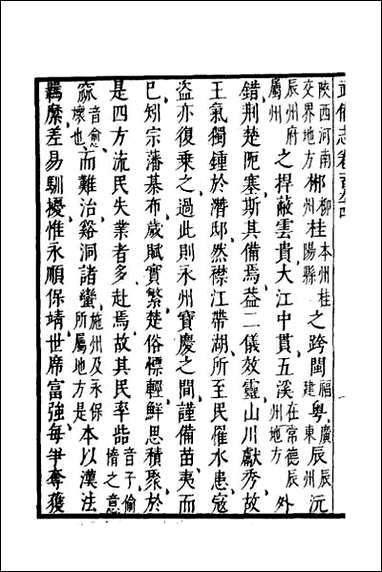 武備志卷百九十四
陝西河南交界地方郴柳州桂本州桂陽縣之跨閩福建粵廣東辰辰州沅
辰州府屬州之捍蔽雲貴大江中貫五溪在常德辰州地方外
錯荊楚阨塞斯其備焉益二儀效靈山川獻秀故
王氣獨鍾於潛邸然襟江帶湖所至民罹水患寇
盜亦復乘之過此則永州寶慶之間謹備苗夷而
已矧宗藩碁布歲賦實繁楚俗慓輕鮮思積聚於
是四方流民失業者多赴焉故其民率呰音子偷惰之意
窳音愈壞也而難治谿洞諸蠻施州及永保所屬地方是本以漢法
羈縻差易馴擾惟永順保靖世席富強每爭奪獲